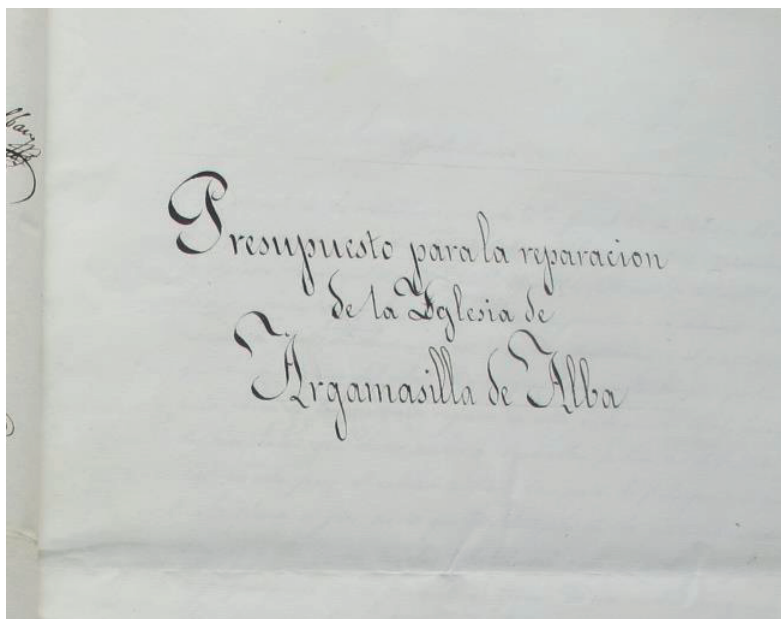 Presupuesto para la reparacion
de la Yglesia de
Argamasilla de Alba